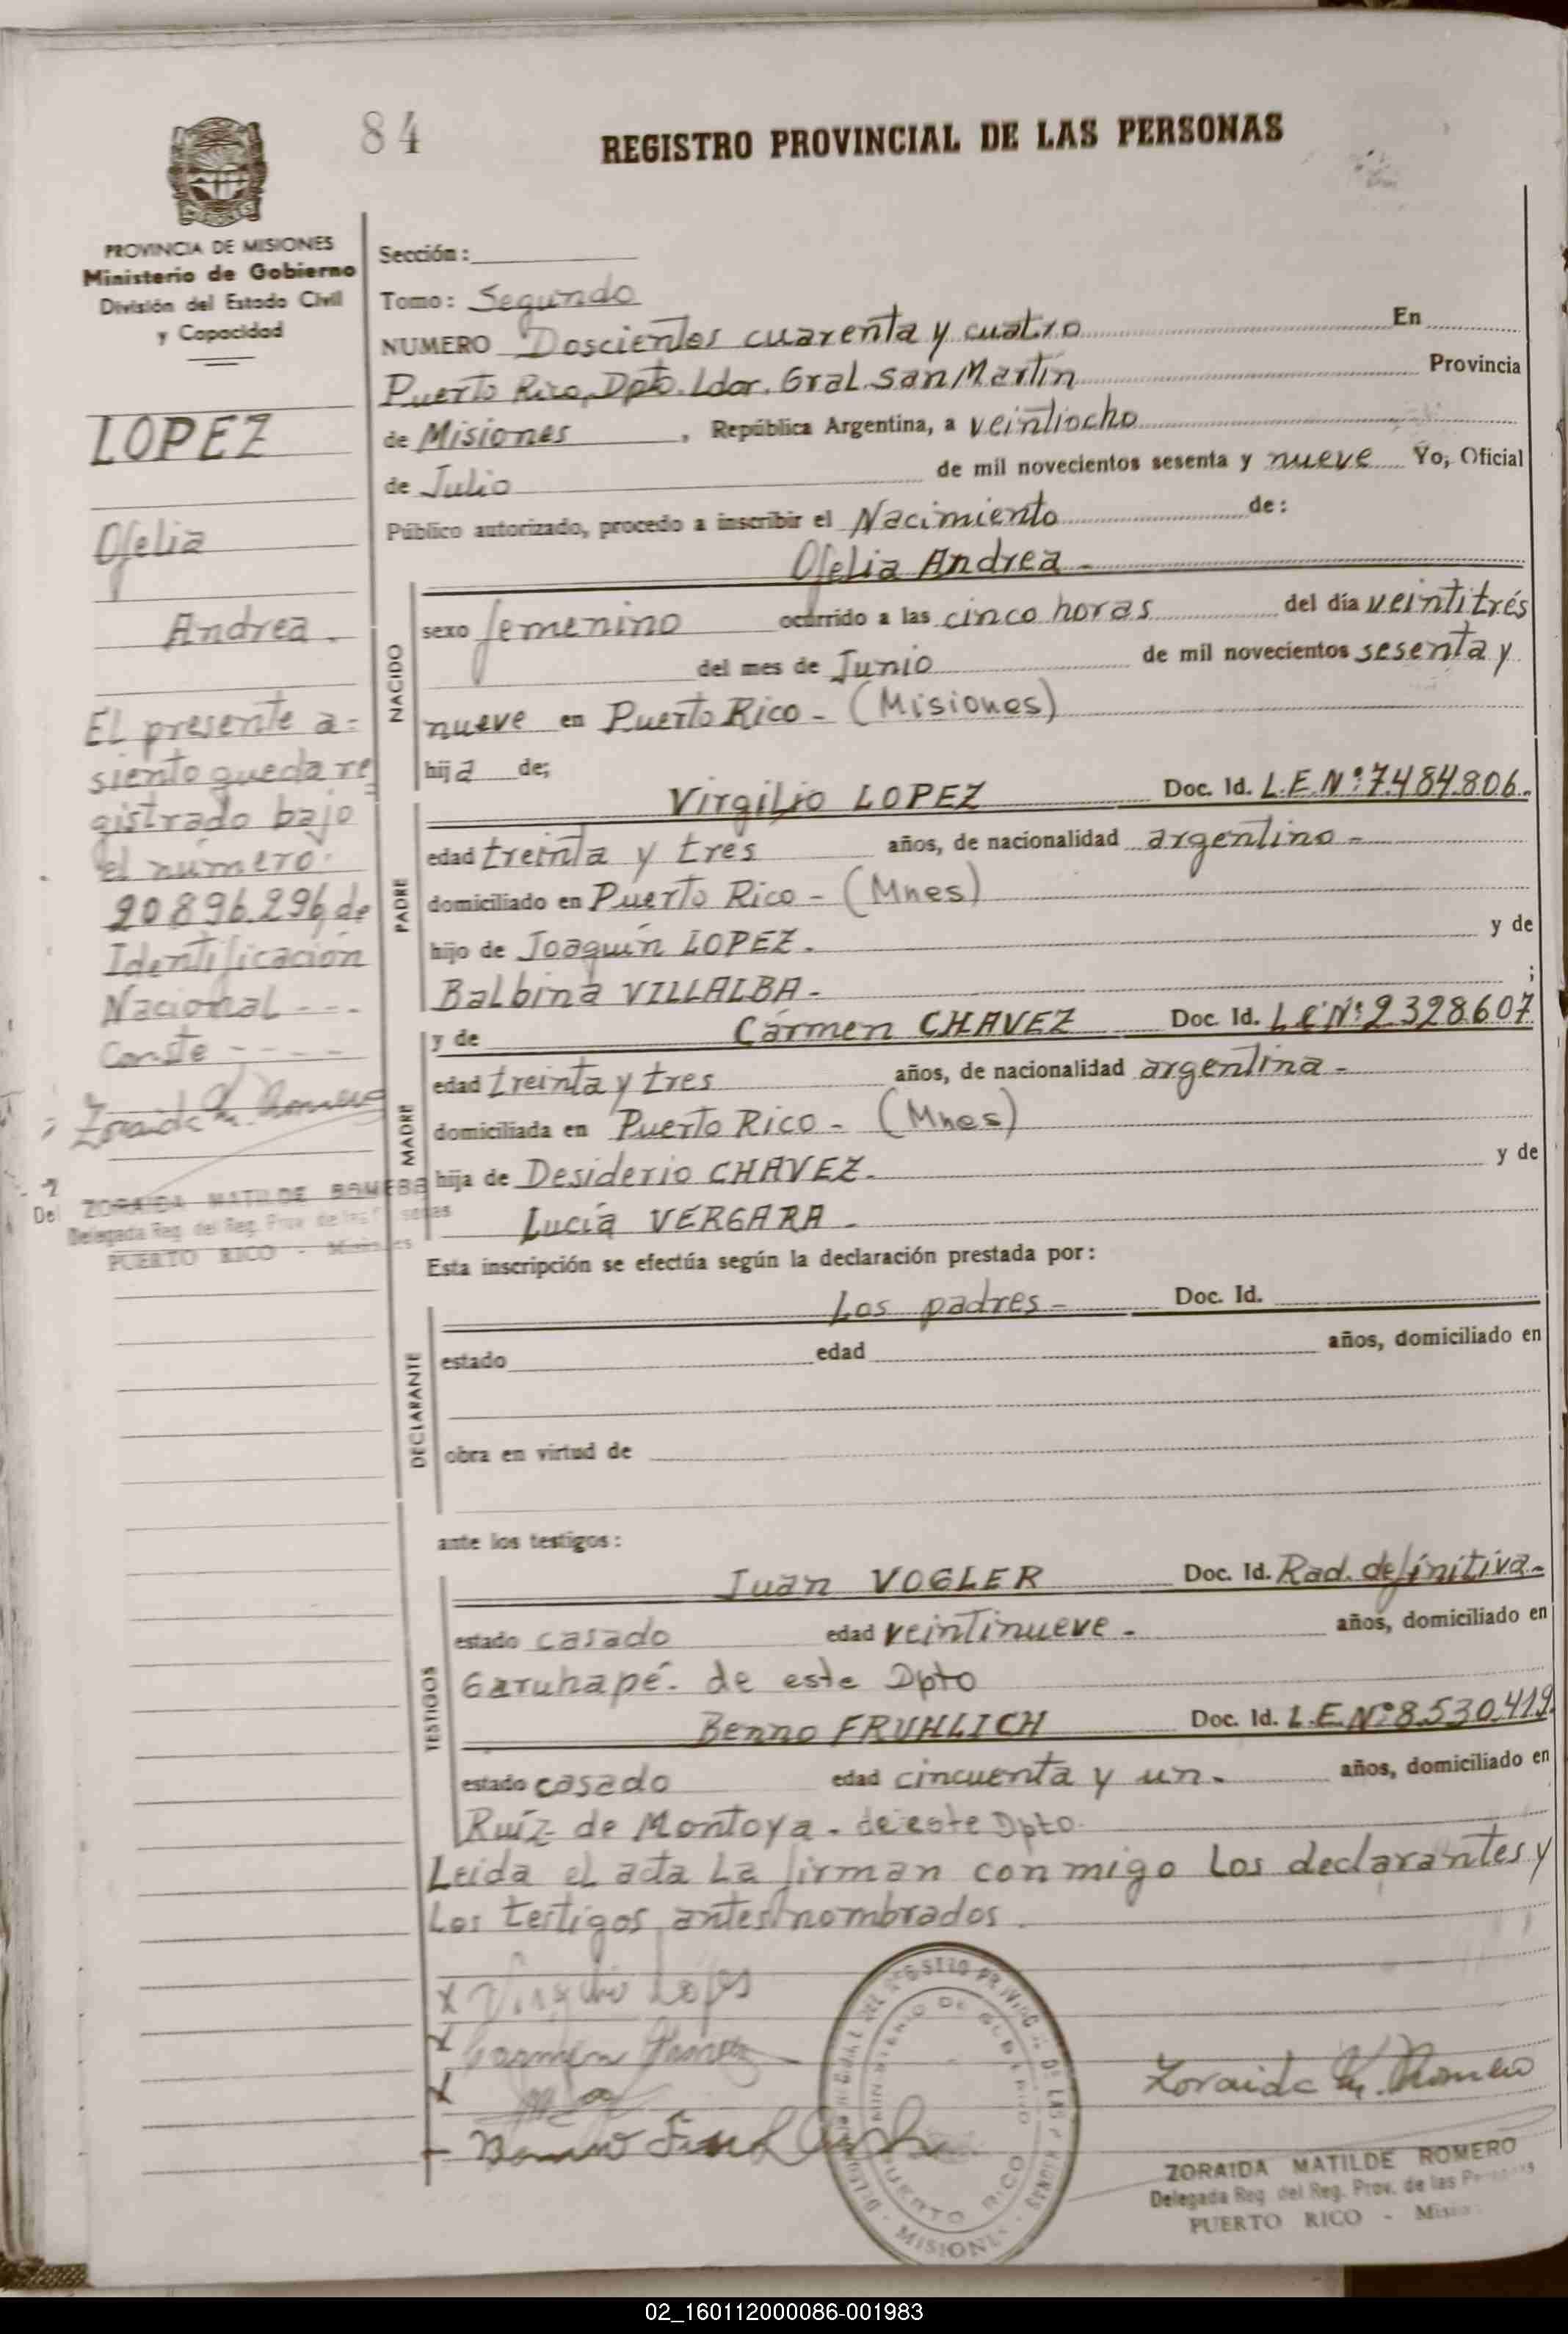 84
REGISTRO PROVINCIAL DE LAS PERSONAS
PROVINCIA DE MISIONES
Ministerio de Gobierno
División del Estado Civil
y Capacidad
LOPEZ
Ofelia
Andrea.
El presente a=
siento queda re
gistrado bajo
el número:
20896.296 de
Identificación
Nacional ---
Conste ----
Zoraida M. Romero
ZORAIDA MATILDE ROMERO
Delegada Reg. del Reg. Prov. de las Personas
PUERTO RICO - Misiones
Sección:
Tomo: Segundo
NUMERO Doscientos cuarenta y cuatro En
Puerto Rico, Dpto. Ldor. Gral. San Martín Provincia
de Misiones, República Argentina, a veintiocho
de Julio de mil novecientos sesenta y nueve Yo, Oficial
Público autorizado, procedo a inscribir el Nacimiento de:
Ofelia Andrea -
NACIDO
sexo femenino ocurrido a las cinco horas del día veintitrés
del mes de Junio de mil novecientos sesenta y
nueve en Puerto Rico - (Misiones)
hija de;
Virgilio LOPEZ Doc. Id. L.E.Nº:7.484.806.
PADRE
edad treinta y tres años, de nacionalidad argentino -
domiciliado en Puerto Rico - (Mnes)
hijo de Joaquín LOPEZ. y de
Balbina VILLALBA - ;
y de Cármen CHAVEZ Doc. Id. L.C.Nº:2.328.607
MADRE
edad treinta y tres años, de nacionalidad argentina -
domiciliada en Puerto Rico - (Mnes)
hija de Desiderio CHAVEZ. y de
Lucía VERGARA -
Esta inscripción se efectúa según la declaración prestada por:
Los padres - Doc. Id.
DECLARANTE
estado edad años, domiciliado en
obra en virtud de
ante los testigos:
Juan VOGLER Doc. Id. Rad. definitiva -
TESTIGOS
estado casado edad veintinueve - años, domiciliado en
Garuhapé - de este Dpto
Benno FRUHLICH Doc. Id. L.E.Nº:8.530.419.
estado casado edad cincuenta y un - años, domiciliado en
Ruíz de Montoya - de este Dpto.
Leída el acta la firman conmigo los declarantes y
los testigos antes nombrados.
x Virgilio Lópes
x Carmen
x
Zoraida M. Romero
DEL REGISTRO PROVINCIAL DE LAS PERSONAS
MINISTERIO DE GOBIERNO
PUERTO RICO
MISIONES
ZORAIDA MATILDE ROMERO
Delegada Reg. del Reg. Prov. de las Personas
PUERTO RICO - Misiones
02_160112000086-001983